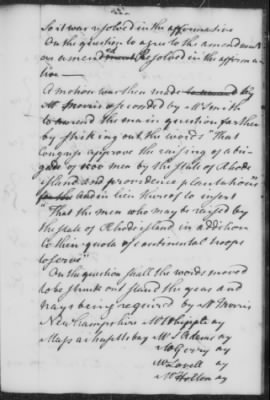 So it was resolved in the affirmative
On the question to agree to the amendment
as amended Resolved in the affirma
tive —
A motion was then made to amend by
Mr Morris seconded by Mr Smith
to amend the main question farther
by striking out the words "That
Congress approve the raising of a bri
gade of 1500 men by the state of Rhode
island and providence plantations"
And in lieu thereof to insert
"That the men who may be raised by
the state of Rhode island in addition
to their quota of continental troops
to serve"
On the question shall the words moved
to be struck out stand the yeas and
nays being required by Mr Morris
New hampshire Mr Whipple ay
Massachusetts bay Mr S Adams ay
Mr Gerry ay
Mr Lovell ay
Mr Holton ay